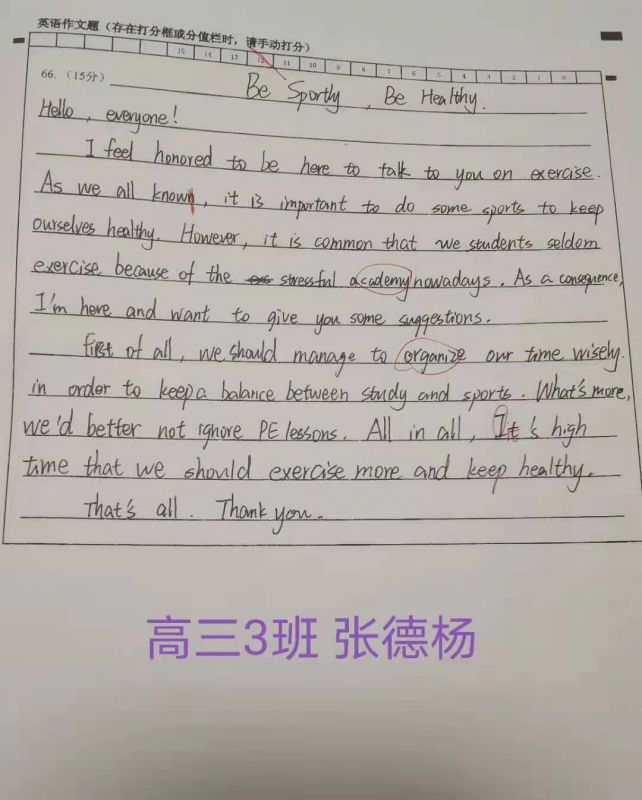 英语作文题（存在打分框或分值栏时，请手动打分）
15 14 13 12 11 10 9 8 7 6 5 4 3 2 1 0
66.（15分）
Be Sportly , Be Healthy.
Hello, everyone!
I feel honored to be here to talk to you on exercise.
As we all known, it is important to do some sports to keep
ourselves healthy. However, it is common that we students seldom
exercise because of the stressful academy nowadays. As a consequence,
I'm here and want to give you some suggestions.
First of all, we should manage to organize our time wisely.
in order to keep a balance between study and sports. What's more,
we'd better not ignore PE lessons. All in all, It's high
time that we should exercise more and keep healthy.
That's all. Thank you.
高三3班 张德杨